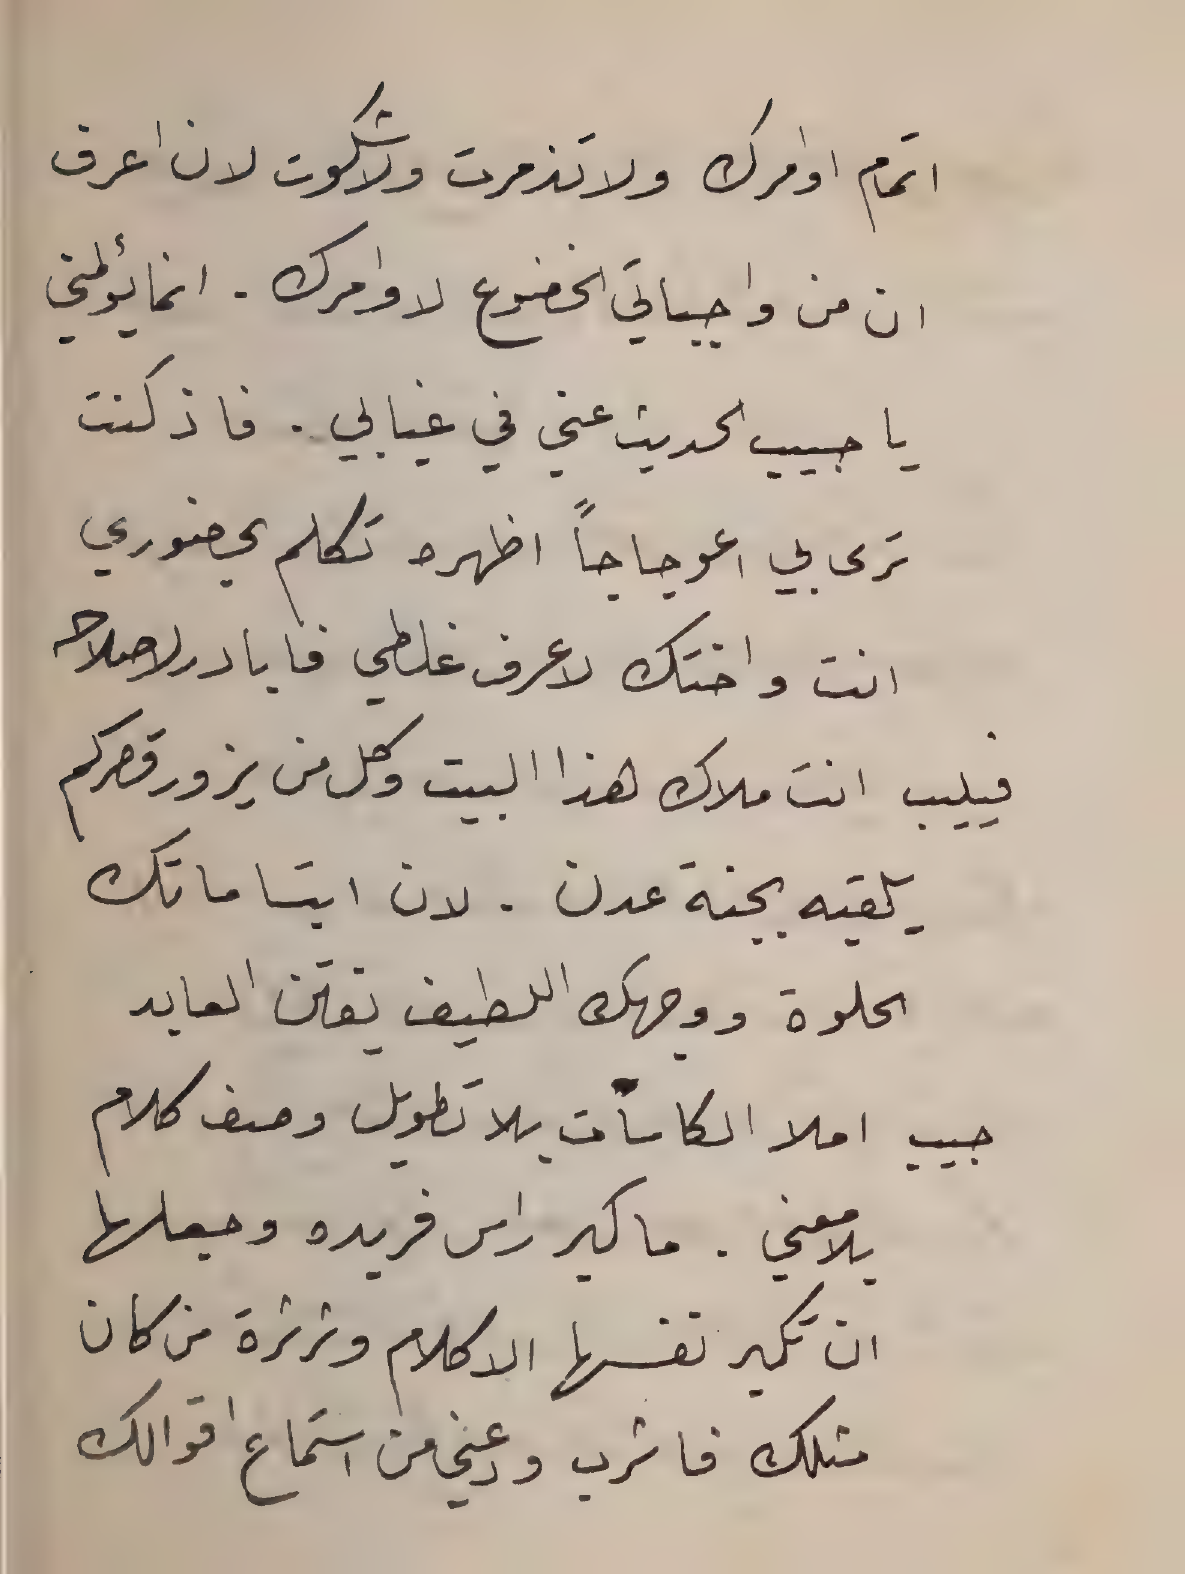 اتمام اوامرك ولا تذمرت ولا شكوت لان اعرف
ان من واجباتي الخضوع لاوامرك . انما يؤلمني
يا حبيب الحديث عني في غيابي . فاذ كنت
ترى بي اعوجاجاً اظهره تكلم بحضوري
انت واختك لاعرف غلطي فابادر لاصلاحه
فيليب انت ملاك هذا البيت وكل من يزور قصركم
يلقيه بجنة عدن . لان ابتساماتك
الحلوة ووجهك اللطيف يفتن العابد
حبيب املا الكاسات بلا تطويل وصف كلام
بلا معني . ما كبر راس فريده وجعلها
ان تكبر نفسها الا كلام وثرثرة من كان
مثلك فاشرب ودعني من استماع اقوالك